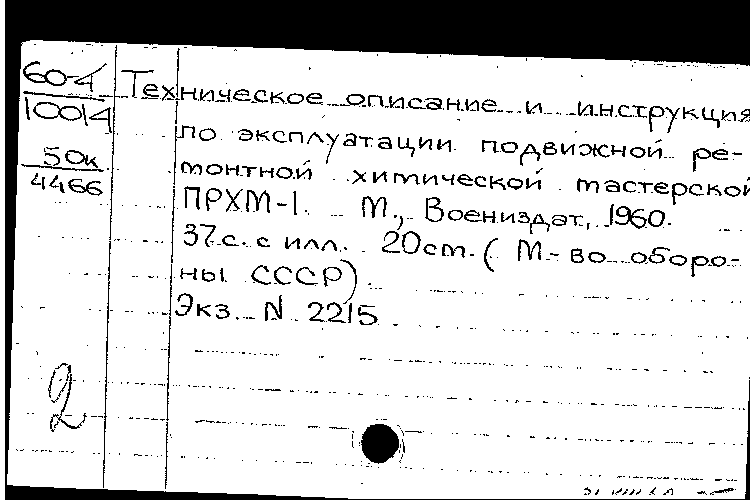 60-4
10014
50к
4466
Техническое описание и инструкция
по эксплуатации подвижной ре-
монтной химической мастерской
ПРХМ-1. М., Воениздат, 1960.
37с. с илл. 20см. (М-во оборо-
ны СССР)
Экз. N 2215
2